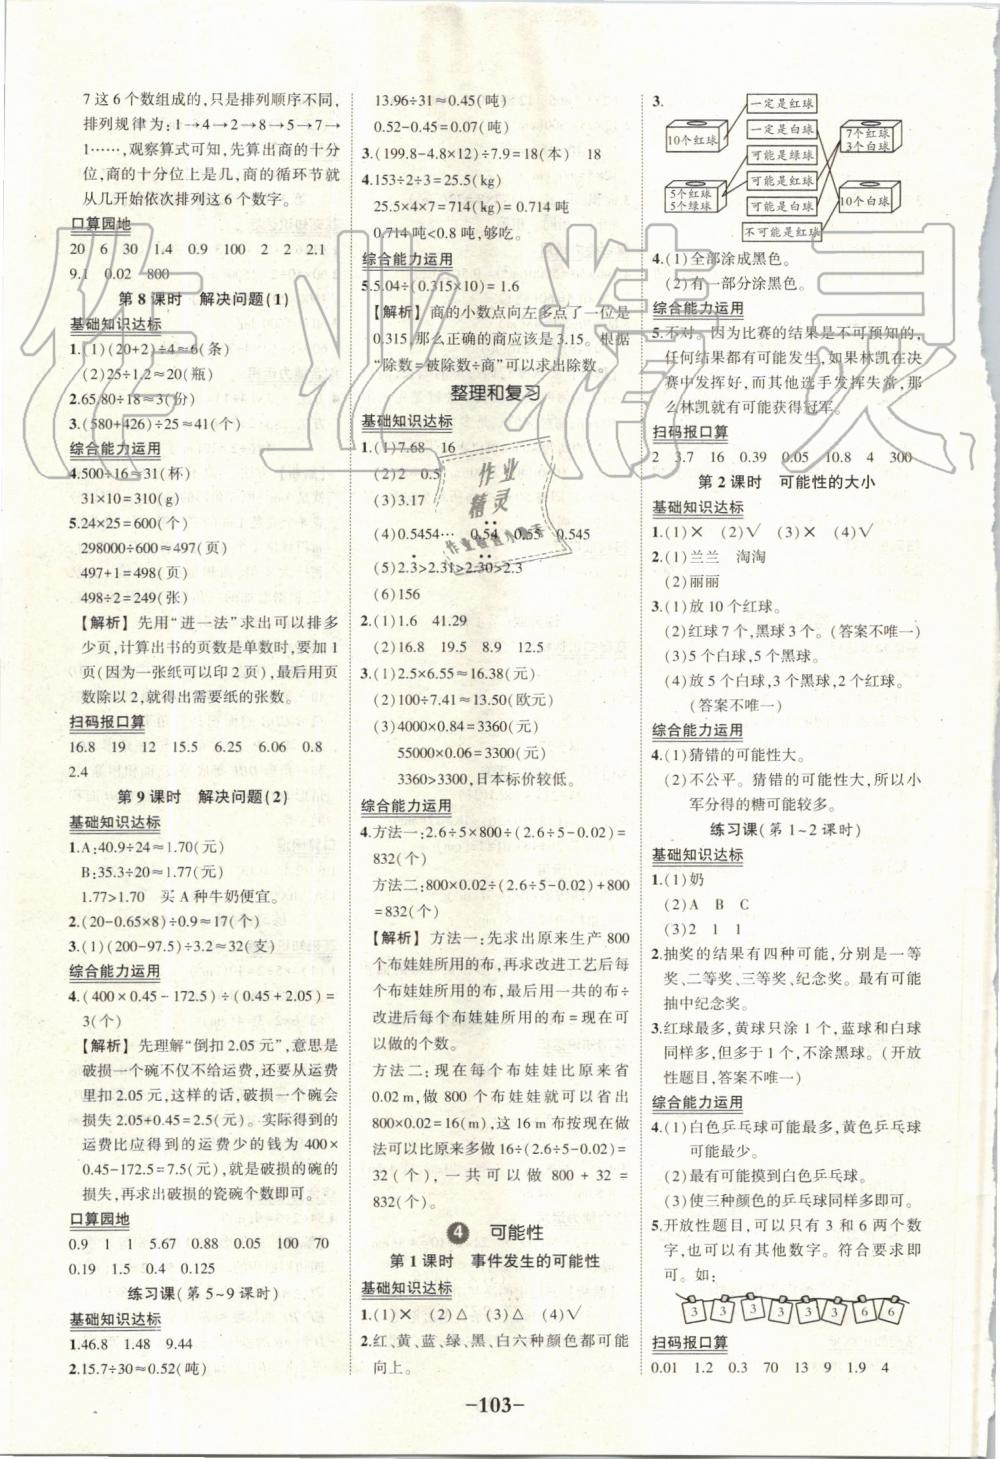 7 这 6 个数组成的,只是排列顺序不同,
排列规律为:1→4→2→8→5→7→
1……,观察算式可知,先算出商的十分
位,商的十分位上是几,商的循环节就
从几开始依次排列这 6 个数字。
口算园地
20 6 30 1.4 0.9 100 2 2 2.1
9.1 0.02 800
第 8 课时 解决问题(1)
基础知识达标
1.(1)(20+2)÷4≈6(条)
(2)25÷1.2≈20(瓶)
2.65.80÷18≈3(份)
3.(580+426)÷25≈41(个)
综合能力运用
4.500÷16≈31(杯)
31×10=310(g)
5.24×25=600(个)
298000÷600≈497(页)
497+1=498(页)
498÷2=249(张)
【解析】先用“进一法”求出可以排多
少页,计算出书的页数是单数时,要加 1
页(因为一张纸可以印 2 页),最后用页
数除以 2,就得出需要纸的张数。
扫码报口算
16.8 19 12 15.5 6.25 6.06 0.8
2.4
第 9 课时 解决问题(2)
基础知识达标
1.A:40.9÷24≈1.70(元)
B:35.3÷20≈1.77(元)
1.77>1.70 买 A 种牛奶便宜。
2.(20-0.65×8)÷0.9≈17(个)
3.(1)(200-97.5)÷3.2≈32(支)
综合能力运用
4.(400×0.45-172.5)÷(0.45+2.05)=
3(个)
【解析】先理解“倒扣 2.05 元”,意思是
破损一个碗不仅不给运费,还要从运费
里扣 2.05 元,这样的话,破损一个碗会
损失 2.05+0.45=2.5(元)。实际得到的
运费比应得到的运费少的钱为 400×
0.45-172.5=7.5(元),就是破损的碗的
损失,再求出破损的瓷碗个数即可。
口算园地
0.9 1 1 5.67 0.88 0.05 100 70
0.19 1.5 0.4 0.125
练习课(第 5~9 课时)
基础知识达标
1.46.8 1.48 9.44
2.15.7÷30≈0.52(吨)
13.96÷31≈0.45(吨)
0.52-0.45=0.07(吨)
3.(199.8-4.8×12)÷7.9=18(本) 18
4.153÷2÷3=25.5(kg)
25.5×4×7=714(kg)=0.714 吨
0.714 吨<0.8 吨,够吃。
综合能力运用
5.5.04÷(0.315×10)=1.6
【解析】商的小数点向左多点了一位是
0.315,那么正确的商应该是 3.15。根据
“除数=被除数÷商”可以求出除数。
整理和复习
基础知识达标
1.(1)7.68 16
(2)2 0.5
(3)3.17
(4)0.5454… 0.5̇4̇ 0.55 0.545
(5)2.3̇>2.31>2.3̇0̇>2.3
(6)156
2.(1)1.6 41.29
(2)16.8 19.5 8.9 12.5
3.(1)2.5×6.55≈16.38(元)
(2)100÷7.41≈13.50(欧元)
(3)4000×0.84=3360(元)
55000×0.06=3300(元)
3360>3300,日本标价较低。
综合能力运用
4.方法一:2.6÷5×800÷(2.6÷5-0.02)=
832(个)
方法二:800×0.02÷(2.6÷5-0.02)+800
=832(个)
【解析】方法一:先求出原来生产 800
个布娃娃所用的布,再求改进工艺后每
个布娃娃所用的布,最后用原来的布÷
改进后每个布娃娃所用的布=现在可
以做的个数。
方法二:现在每个布娃娃比原来省
0.02 m,做 800 个布娃娃就可以省出
800×0.02=16(m),这 16 m布按现在做
法可以比原来多做 16÷(2.6÷5-0.02)=
32(个),一共可以做 800+32=
832(个)。
4 可能性
第 1 课时 事件发生的可能性
基础知识达标
1.(1)× (2)△ (3)△ (4)√
2.红、黄、蓝、绿、黑、白六种颜色都可能
向上。
3.
一定是红球
一定是白球
可能是绿球
可能是红球
可能是白球
不可能是红球
10个红球
5个红球
5个绿球
7个红球
3个白球
10个白球
4.(1)全部涂成黑色。
(2)有一部分涂黑色。
综合能力运用
5.不对。因为比赛的结果是不可预知的,
任何结果都有可能发生,如果林凯在决
赛中发挥好,而其他选手发挥失常,那
么林凯就有可能获得冠军。
扫码报口算
2 3.7 16 0.39 0.05 10.8 4 300
第 2 课时 可能性的大小
基础知识达标
1.(1)× (2)√ (3)× (4)√
2.(1)兰兰 淘淘
(2)丽丽
3.(1)放 10 个红球。
(2)红球 7 个,黑球 3 个。(答案不唯一)
(3)5 个白球,5 个黑球。
(4)放 5 个白球,3 个黑球,2 个红球。
(答案不唯一)
综合能力运用
4.(1)猜错的可能性大。
(2)不公平。猜错的可能性大,所以小
军分得的糖可能较多。
练习课(第 1~2 课时)
基础知识达标
1.(1)奶
(2)A B C
(3)2 1 1
2.抽奖的结果有四种可能,分别是一等
奖、二等奖、三等奖、纪念奖。最有可能
抽中纪念奖。
3.红球最多,黄球只涂 1 个,蓝球和白球
同样多,但多于 1 个,不涂黑球。(开放
性题目,答案不唯一)
综合能力运用
4.(1)白色乒乓球可能最多,黄色乒乓球
可能最少。
(2)最有可能摸到白色乒乓球。
(3)使三种颜色的乒乓球同样多即可。
5.开放性题目,可以只有 3 和 6 两个数
字,也可以有其他数字。符合要求即
可。如:
3 3 3 3 3 6 6
扫码报口算
0.01 1.2 0.3 70 13 9 1.9 4
-103-
作业精灵
作业
精灵